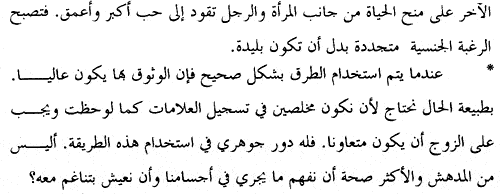 الآخر على منح الحياة من جانب المرأة والرجل تقود إلى حب أكبر وأعمق. فتصبح
الرغبة الجنسية متجددة بدل أن تكون بليدة.
* عندما يتم استخدام الطرق بشكل صحيح فإن الوثوق بها يكون عاليـــا.
بطبيعة الحال نحتاج لأن نكون مخلصين في تسجيل العلامات كما لوحظت ويجـــب
على الزوج أن يكون متعاونا. فله دور جوهري في استخدام هذه الطريقة. أليـــس
من المدهش والأكثر صحة أن نفهم ما يجري في أجسامنا وأن نعيش بتناغم معه؟